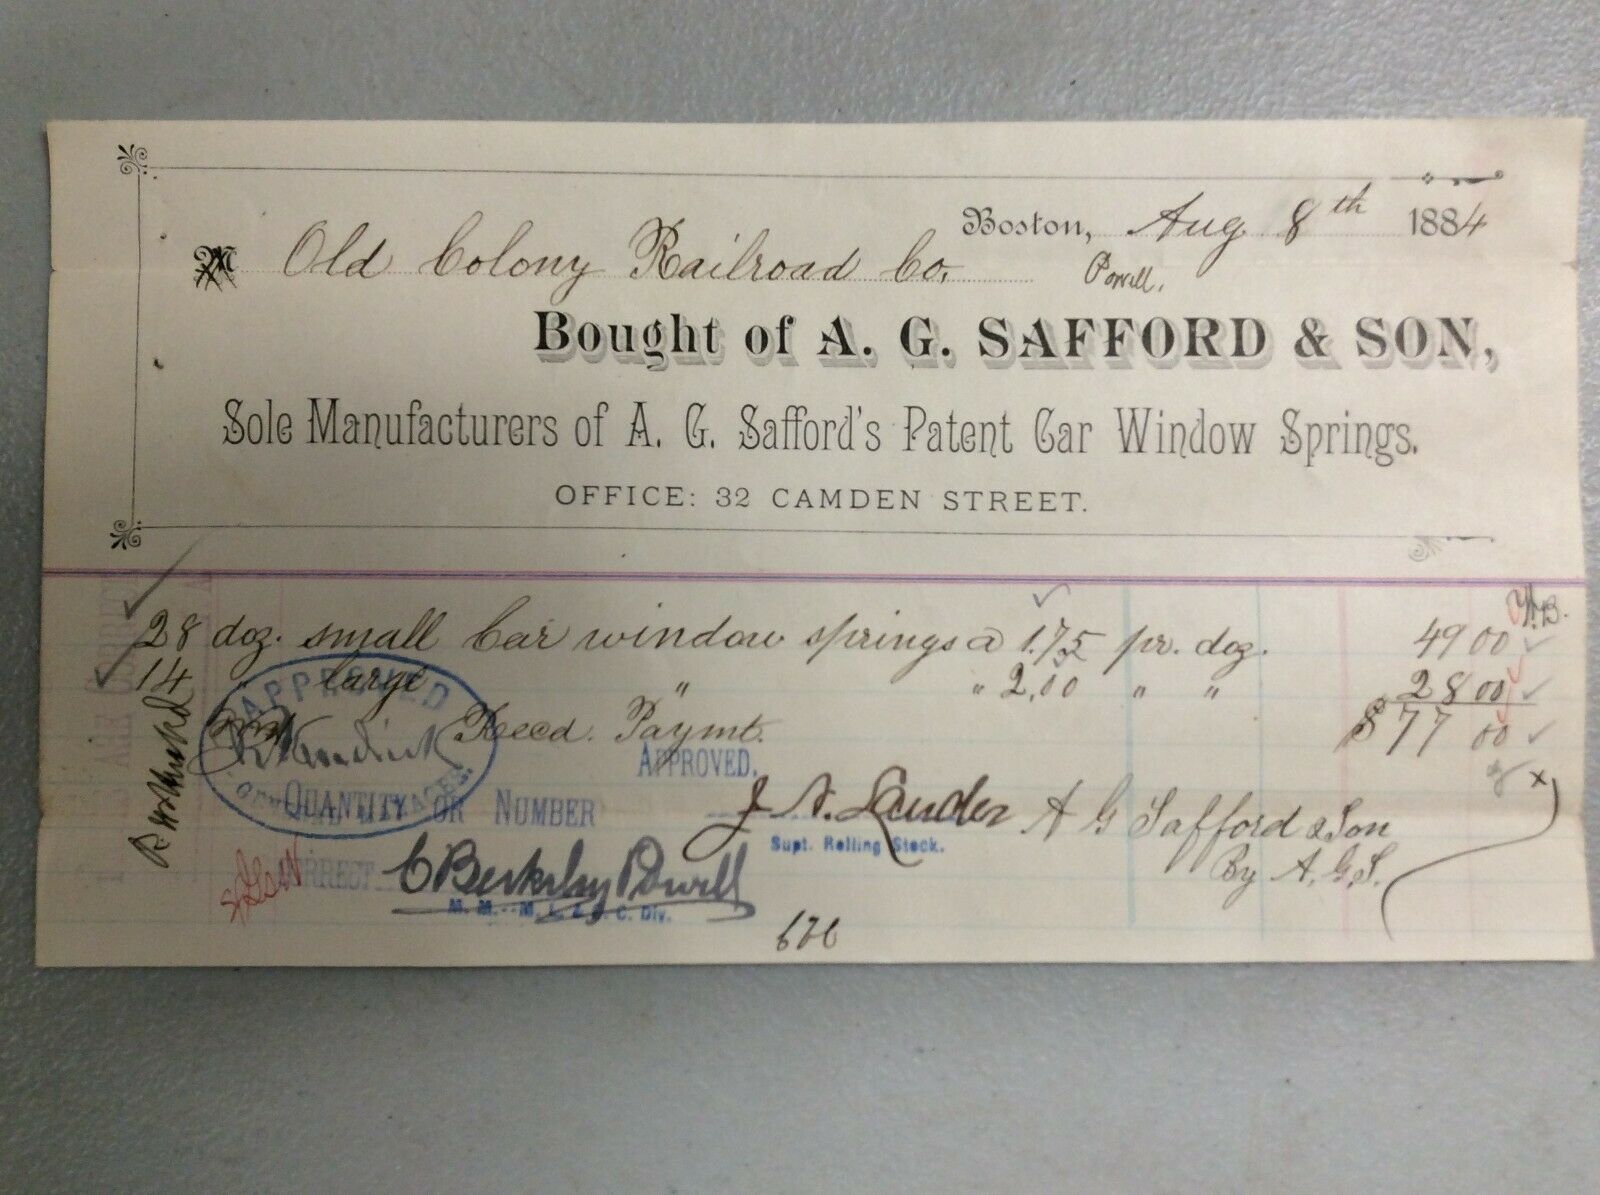 Boston, Aug 8th 1884
M Old Colony Railroad Co. Powell.
Bought of A. G. SAFFORD & SON,
Sole Manufacturers of A. G. Safford's Patent Car Window Springs.
OFFICE: 32 CAMDEN STREET.
28 doz. small Car window springs a 1.75 pr. doz. 49 00
14 " large " " 2,00 " " 28 00
Recd. Paymt. $77 00
APPROVED
APPROVED.
QUANTITY OR NUMBER
CORRECT
J. N. Lauder
Supt. Rolling Stock.
A G Safford & Son
By A. G. S.
C Berkeley Powell
C. Div.